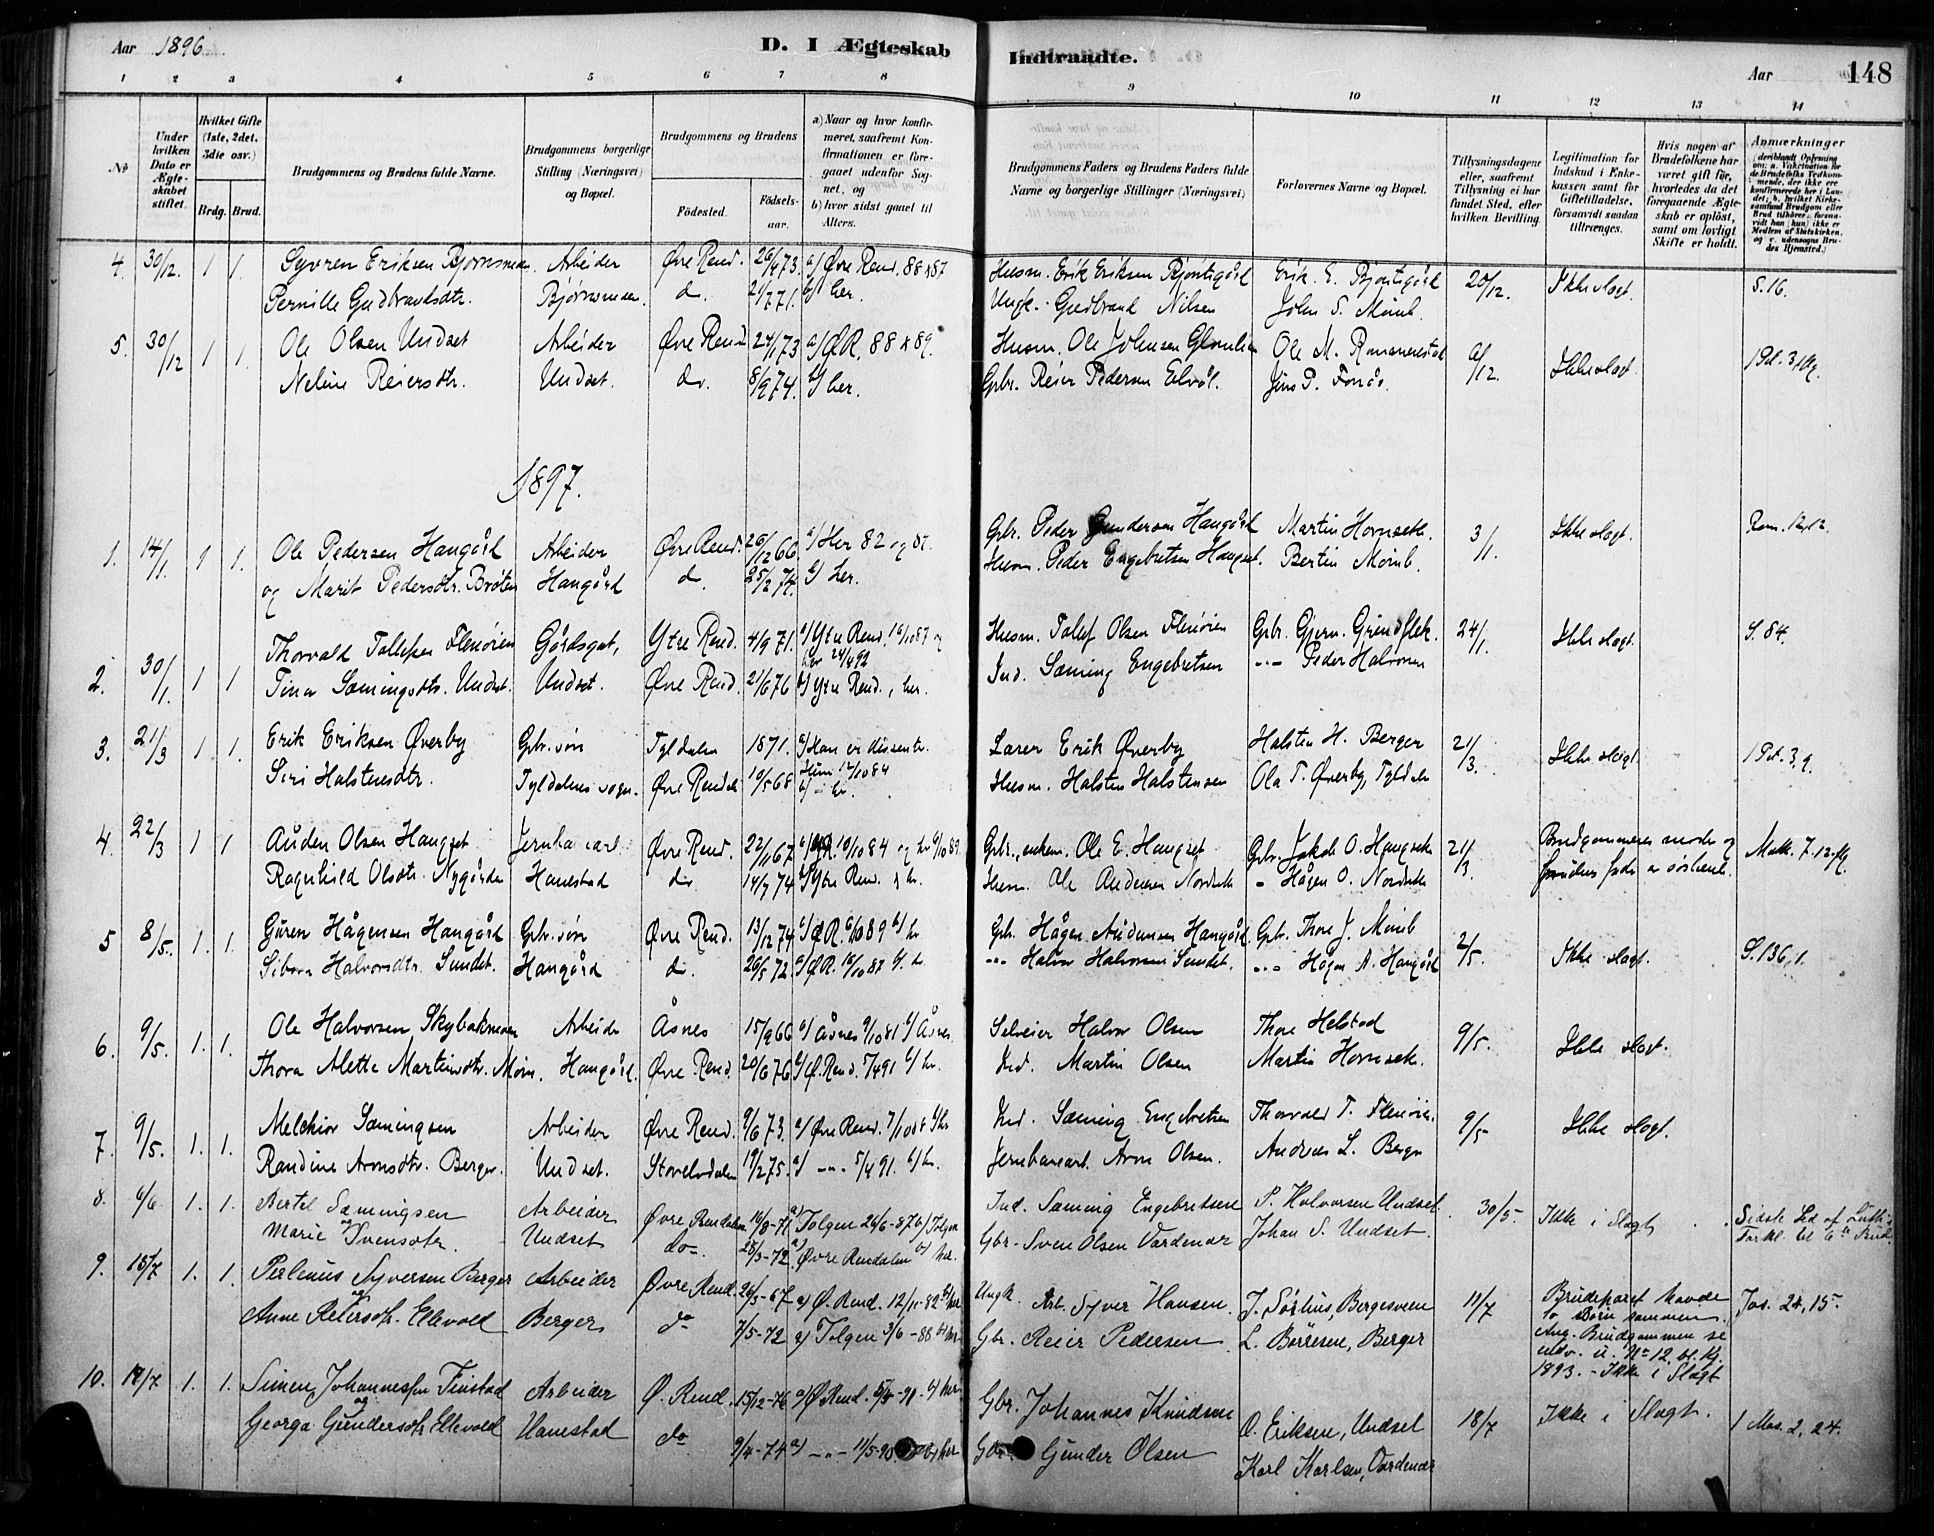 Aar 1896. D. I Ægteskab Indtraadte. Aar 148
1 2 3 4 5 6 7 8 9 10 11 12 13 14
№
Under hvilken Dato er Ægteskabet stiftet.
Hvilket Gifte (1ste, 2det, 3die osv.)
Brdg. Brud.
Brudgommens og Brudens fulde Navne.
Brudgommens borgerlige Stilling (Næringsvei) og Bopæl.
Brudgommens og Brudens
Fødested. Fødselsaar.
a) Naar og hvor konfirmeret, saafremt Konfirmationen er foregaaet udenfor Sognet, og
b) hvor sidst gaaet til Alters.
Brudgommens Faders og Brudens Faders fulde Navne og borgerlige Stillinger (Næringsvei)
Forlovernes Navne og Bopæl.
Tillysningsdagene eller, saafremt Tillysning ei har fundet Sted, efter hvilken Bevilling.
Legitimation for Indskud i Enkekassen samt for Giftetilladelse, forsaavidt saadan tiltrænges.
Hvis nogen af Brudefolkene har været gift før, hvorledes da det foregaaende Ægteskab er opløst, samt om lovligt Skifte er holdt.
Anmærkninger
4. 30/12. 1 1. Syvren Eriksen Bjørnsmoen. Arbeider Øvre Rend. 26/4 73. a) Øvre Rend. 88 Husm. Erik Eriksen Erik E. 20/12. Ikke slægt. S. 16.
Pernille Gudbrandsdtr. Bjørnsmoen. do. 21/7 71. b) her. Ungk. Gudbrand Nilsen John S. Momb.
5. 30/12 1 1. Ole Olsen Undset Arbeider Øvre Rend 24/1 73 a) Ø.R. 88 & 89. Husm. Ole Johnsen Ole M. Romenestad 6/12. Ikke slægt. 1 Pet. 3,
Neline Reiersdtr. Undset. do. 8/9 74. b) her. Gbr. Reier Pedersen Jens P. Fonås.
1897.
1. 14/1. 1 1. Ole Pedersen Hangård Arbeider Øvre Rend. 26/12 66 a) Her 82 og 87. Gbr. Peder Gundersen Hangård Martin Hornseth. 3/1. Ikke slægt. Rom. 12,12.
og Marit Pedersdtr. Bråten Hangård d. 25/2 74. b) her. Husm. Peder Engebretsen Hangset. Bertin Momb.
2. 30/1. 1 1 Thorvald Tollefsen Flenøien Gårdsgut, Ytre Rend. 4/9 71. a) Ytre Rend. 16/10 87 og her 24/4 92 Husm. Tollef Olsen Flenøien Gbr. Gjern. Grindflek. 24/1. Ikke slægt. S. 84.
Tina Sæmingsdtr. Undset. Undset. Øvre Rend. 21/6 76 b) Ytre Rend., her. Ind. Sæming Engebretsen -"- Peder Halvorsen
3. 21/3 1. 1. Erik Eriksen Øverby Gbr. søn Tyldalen 1871. a) Han er dissenter. Lærer Erik Øverby Halsten H. Berger 21/3. Ikke slægt. 1 Pet. 3, 9.
Siri Halstensdtr. Tyldalens sogn. Øvre Rendal 10/5 68 Hun 12/10 84 b) her. Husm. Halsten Halstensen Ola T. Øverby, Tyldalen
4. 22/3 1 1 Auden Olsen Hangset Jernba. arb. Øvre Rend. 22/11 67 10/10 84 og Gbr., enkem. Ole E. Hangset Gbr. Jakob O. Hangseth 21/3. Brudgommens moder og Matt. 7. 12
Ragnhild Olsdtr. Nygården Hanestad do. 14/7 74 Ytre Rend. Husm. Ole Andersen Nordseth " Hågen O. Nordseth brudens fader er søskend.
5 8/5. 1. 1. Gjøren Hågensen Hangård Gbr. søn Øvre Rend. 13/12 74 a) Ø.R. 6/10 89 b) her Gbr. Hågen Audensen Hangård. Gbr. Thore J. Momb 2/5. Ikke slægt. S. 136, 1.
Sibora Halvorsdtr. Sundet. Hangård d. 26/5 72 a) Ø.R. 16/10 87 b. h. -"- Halvor Halvorsen Sundet. -"- Hågen A. Hangård
6. 9/5. 1. 1. Ole Halvorsen Skybakmoen Arbeider Åsnes 15/9 66 a) Åsnes 9/10 81 b) Åsnes. Selveier Halvor Olsen Thore Helstad 9/5. Ikke slægt.
Thora Alette Martinsdtr. Mom. Hangård. Øvre Rend. 20/6 76 a) Ø. Rend. 5/4 91 b) her. Ind. Martin Olsen Martin Hornseth.
7. 9/5. 1. 1. Melchior Sæmingsen Arbeider Øvre Rend. 9/6 73. a) Øvre Rend. 7/10 b) her Ind. Sæming Engebretsen Thorvald T. Flenøien. 9/5 Ikke slægt.
Randine Arnesdtr. Berger. Undset. Storelvdalen 19/2 75. a) -"- 5/4 91. b) her. Jernbanearb. Arne Olsen. Andreas L. Berger
8. 6/6 1. 1. Bertel Sæmingsen Arbeider Øvre Rendalen 16/8-71 a) Tolgen 26/6-87 b) Tolgen Ind. Sæming Engebretsen P. Halvorsen Undset. 30/5. Ikke i Slægt Sidste Led af Luthers Forkl. til 6te Bud.
og Marie Svensdtr. Undset do. 28/3-72 a) Øvre Rendalen b) her. Gbr. Sven Olsen Vardenær Johan S. Undset.
9. 15/7 1. 1. Perlenus Syversen Berger Arbeider Øvre Rend. 26/3-67 a) Ø. Rend. 12/11-82 b) her Ungk. Arb. Syver Hansen. J. Sørlius, Bergesveen 11/7 Brudeparet havde to Børn sammen. Jos. 24, 15.
og Anne Reiersdtr. Ellevold Berger do 7/5-72 a) Tolgen 3/6-88 b) her Gbr. Reier Pedersen L. Børresen, Berger Ang. Brudgommen se indv. u. No 12, bl. Kf. 1893. - Ikke i Slægt
10. 18/7 1. 1. Simen Johannessen Finstad Arbeider Ø. Rend. 15/12-76 a) Ø. Rend. 5/4-91 - b) her Gbr. Johannes Knudsen O. Eriksen, Undset 18/7 Ikke i Slægt. 1 Mos. 2, 24.
og Georga Gundersdtr. Ellevold Hanestad do 9/4-74 a) -"- 11/5-90 b) her Gbr. Gunder Olsen Karl Karlsen, Vardenær